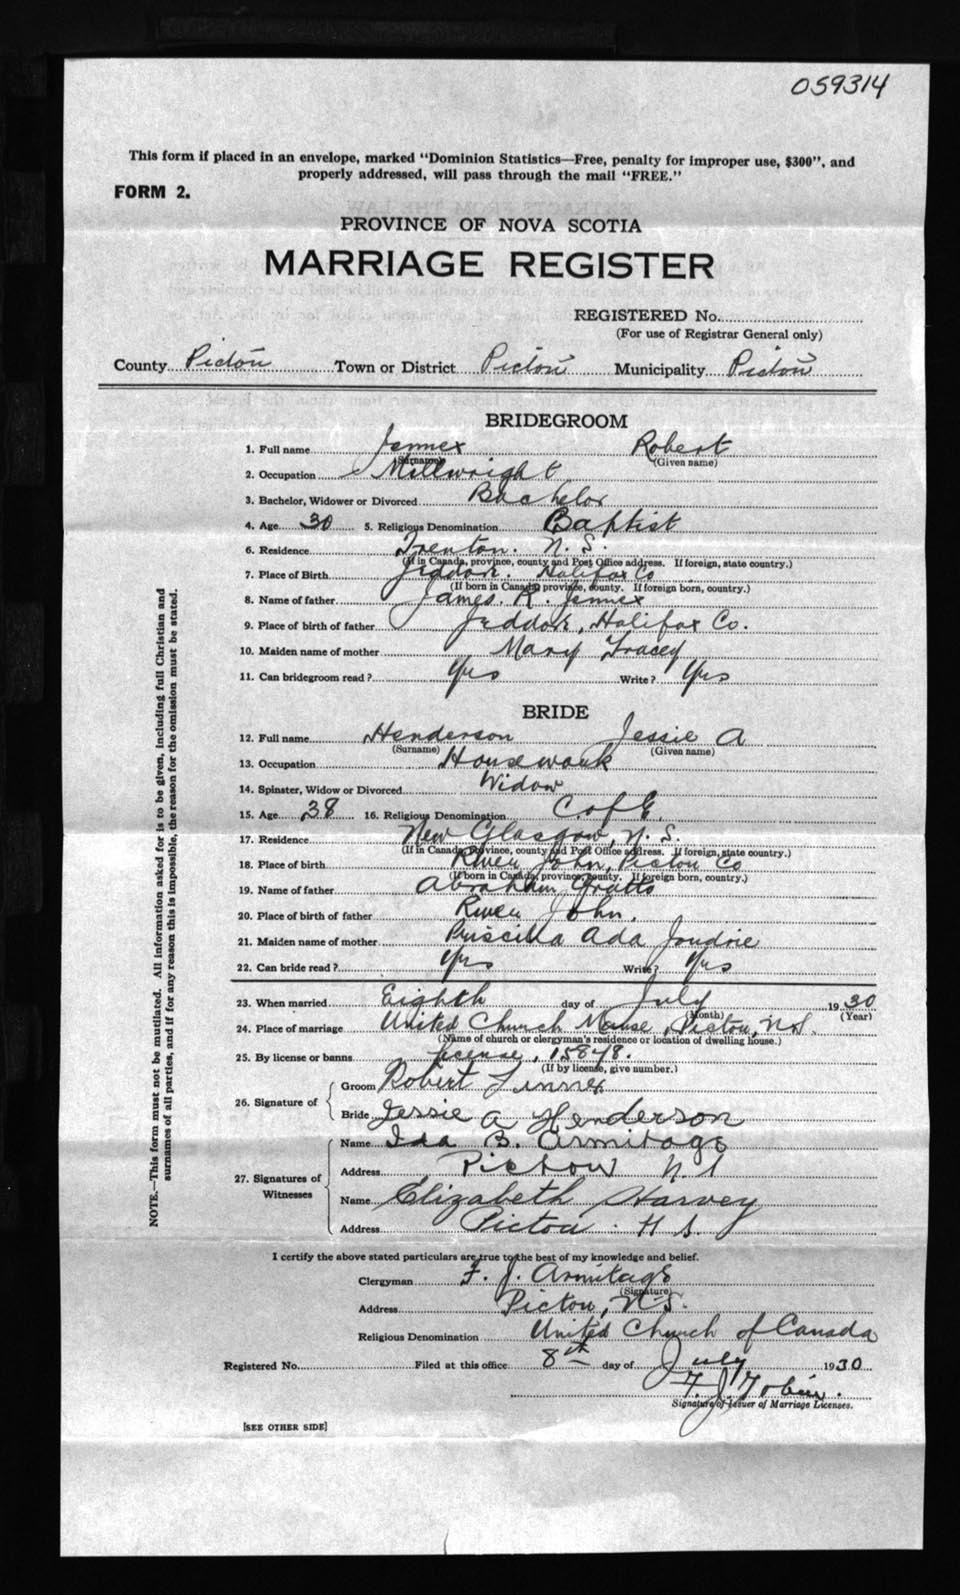 059314
This form if placed in an envelope, marked "Dominion Statistics—Free, penalty for improper use, $300", and
properly addressed, will pass through the mail "FREE."
FORM 2.
PROVINCE OF NOVA SCOTIA
MARRIAGE REGISTER
REGISTERED No.
(For use of Registrar General only)
County Pictou Town or District Pictou Municipality Pictou
BRIDEGROOM
1. Full name Jennex Robert
(Surname) (Given name)
2. Occupation Millwright
3. Bachelor, Widower or Divorced Bachelor
4. Age 30 5. Religious Denomination Baptist
6. Residence Trenton. N. S.
(If in Canada, province, county and Post Office address. If foreign, state country.)
7. Place of Birth Jeddore. Halifax Co
(If born in Canada, province, county. If foreign born, country.)
8. Name of father James. R. Jennex
9. Place of birth of father Jeddore, Halifax Co.
10. Maiden name of mother Mary Tracey
11. Can bridegroom read? Yes Write? Yes
BRIDE
12. Full name Henderson Jessie A
(Surname) (Given name)
13. Occupation Housework
14. Spinster, Widow or Divorced Widow
15. Age 38 16. Religious Denomination C of E.
17. Residence New Glasgow, N. S.
(If in Canada, province, county and Post Office address. If foreign, state country.)
18. Place of birth River John, Pictou Co
(If born in Canada, province, county. If foreign born, country.)
19. Name of father Abraham Gratto
20. Place of birth of father River John.
21. Maiden name of mother Priscilla Ada Joudrie
22. Can bride read? Yes Write? Yes
23. When married Eighth day of July 1930
(Month) (Year)
24. Place of marriage United Church Manse, Pictou, N.S.
(Name of church or clergyman's residence or location of dwelling house.)
25. By license or banns license, 15878.
(If by license, give number.)
26. Signature of
Groom Robert Jennex
Bride Jessie A Henderson
27. Signatures of Witnesses
Name Ida B. Armitage
Address Pictou N S
Name Elizabeth Harvey
Address Pictou. N. S.
I certify the above stated particulars are true to the best of my knowledge and belief.
Clergyman F. J. Armitage
(Signature)
Address Pictou, N.S.
Religious Denomination United Church of Canada
Registered No. Filed at this office 8th day of July 1930
F. J. Tobin.
Signature of Issuer of Marriage Licenses.
[SEE OTHER SIDE]
NOTE.—This form must not be mutilated. All information asked for is to be given, including full Christian and
surnames of all parties, and if for any reason this is impossible, the reason for the omission must be stated.